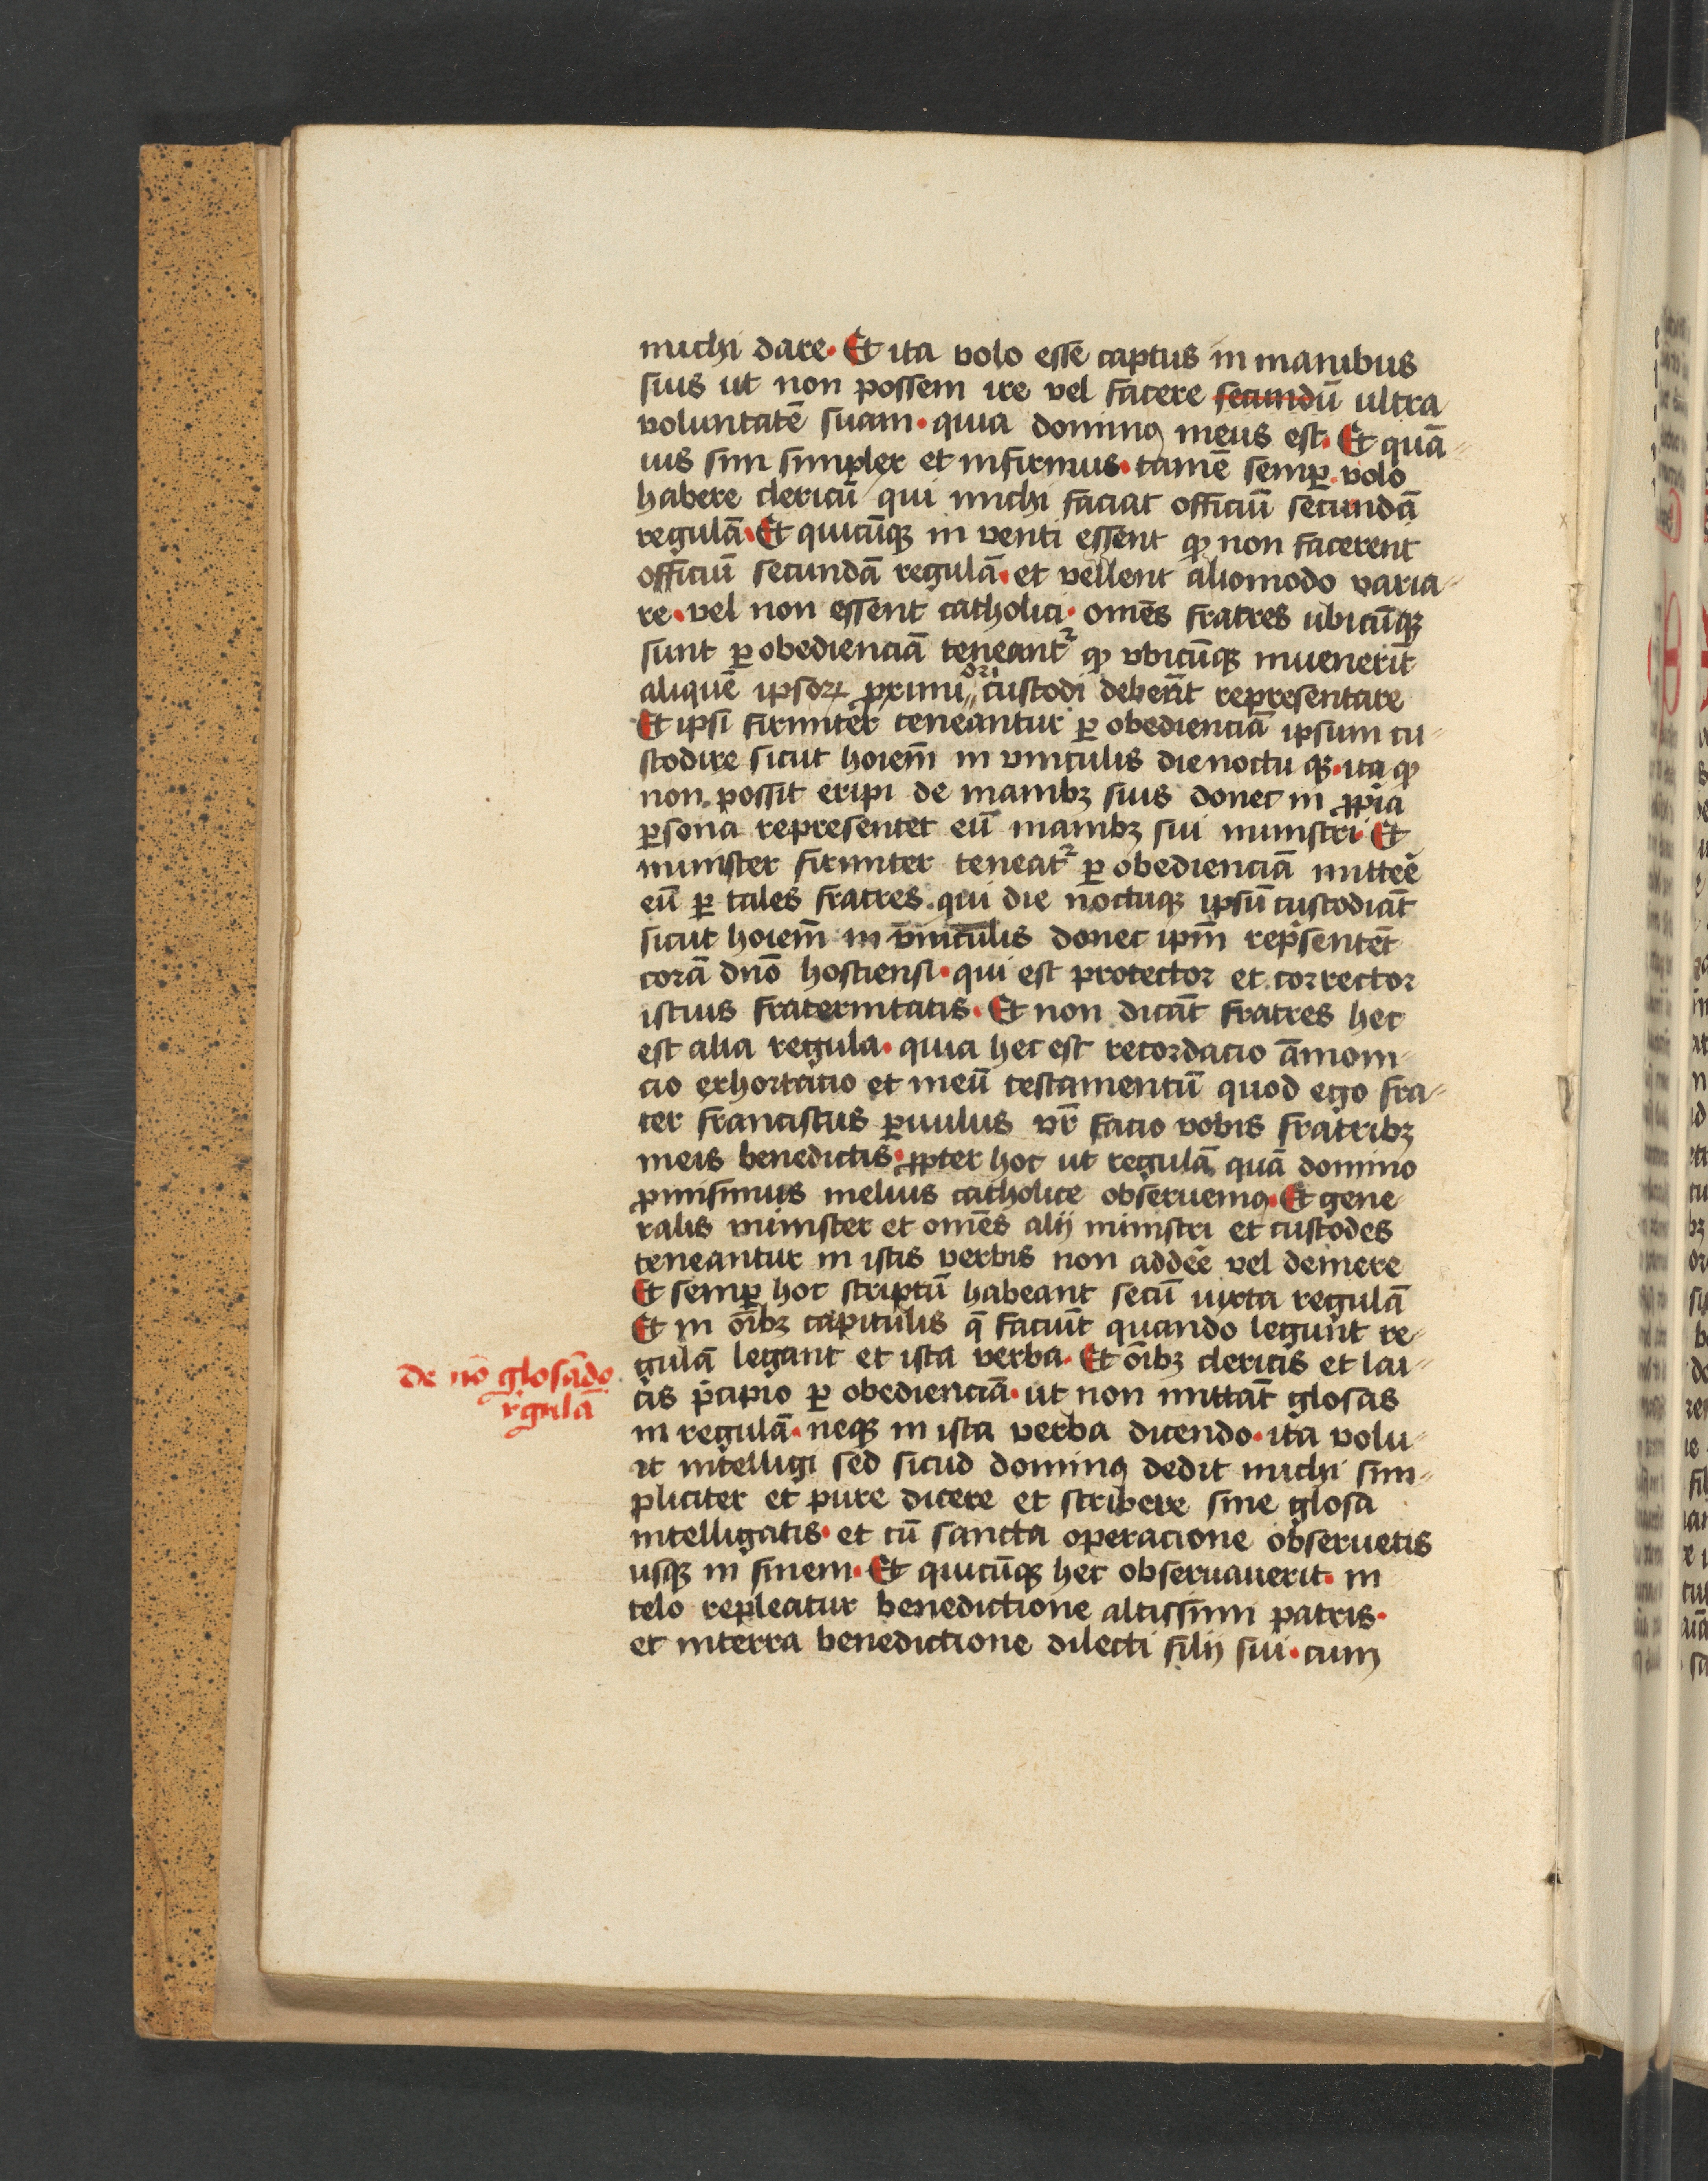 michi dare. Et ita volo esse captus in manibus
suis ut non possem ire vel facere secundū ultra
voluntatē suam. quia dominꝰ meus est. Et quā-
uis sim simplex et infirmus. tamē semꝑ volo
habere clericū qui michi faciat officiū secundā
regulā. Et quicūqꝫ in venti essent ꝙ non facerent
officiū secundā regulā. et vellent aliomodo varia-
re. vel non essent catholici. omēs fratres ubicūqꝫ
sunt ꝑ obedienciā teneantᷣ ꝙ vbicūqꝫ inuenerīt
aliquē ipsoꝝ ꝓximiori custodi deberāt representare
Et ipsi firmiter teneantur ꝑ obedienciā ipsum cu-
stodire sicut hoiem̄ in vinculis die noctu qꝫ. ita ꝙ
non possit eripi de manibꝫ suis donec in ꝓpria
ꝑsona representet eū manibꝫ sui ministri. Et
minister firmiter teneatᷣ ꝑ obedienciā mittēe
eū ꝑ tales fratres. qui die noctuqꝫ ipsū custodiāt
sicut hoiem̄ in vinculis donec ipm̄ rep̄sentēt
corā dn̄o hostiensi. qui est protector et corrector
istius fraternitatis. Et non dicāt fratres hec
est alia regula. quia hec est recordacio āmoni-
cio exhortatio et meū testamentū quod ego fra-
ter franciscus ꝑuulus vr̄ facio vobis fratribꝫ
meis benedictis. ꝓpter hoc ut regulā quā domino
ꝓmisimus melius catholice obseruemꝰ. Et gene-
ralis minister et omēs alij ministri et custodes
teneantur in istis verbis non addēe vel demere
Et semꝑ hoc scriptū habeant secū iuxta regulā
Et in oībꝫ capitulis q̄ faciūt quando legunt re-
gulā legant et ista verba. Et oībꝫ clericis et lai-
de nō glosādo
r̄gulā
cis p̄cipio ꝑ obedienciā. ut non mittāt glosas
in regulā. neqꝫ in ista verba dicendo. ita volu-
it intelligi sed sicud dominꝰ dedit michi sim-
pliciter et pure dicere et scribere sine glosa
intelligatis. et cū sancta operacione obseruetis
usqꝫ in finem. Et quicūqꝫ hec obseruauerit. in
celo repleatur benedictione altissimi patris.
et interra benedictione dilecti filij sui. cum